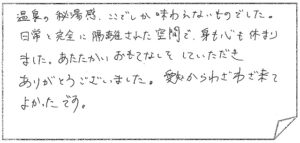 温泉の秘湯感、ここでしか味わえないものでした。
日常と完全に隔離された空間で、身も心も休まり
ました。あたたかいおもてなしをしていただき
ありがとうございました。愛知からわざわざ来て
よかったです。